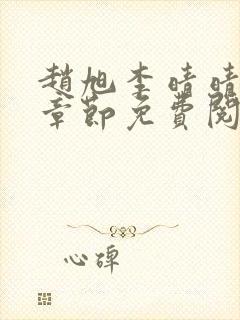 趙旭李晴晴
章節免費閱
心碑